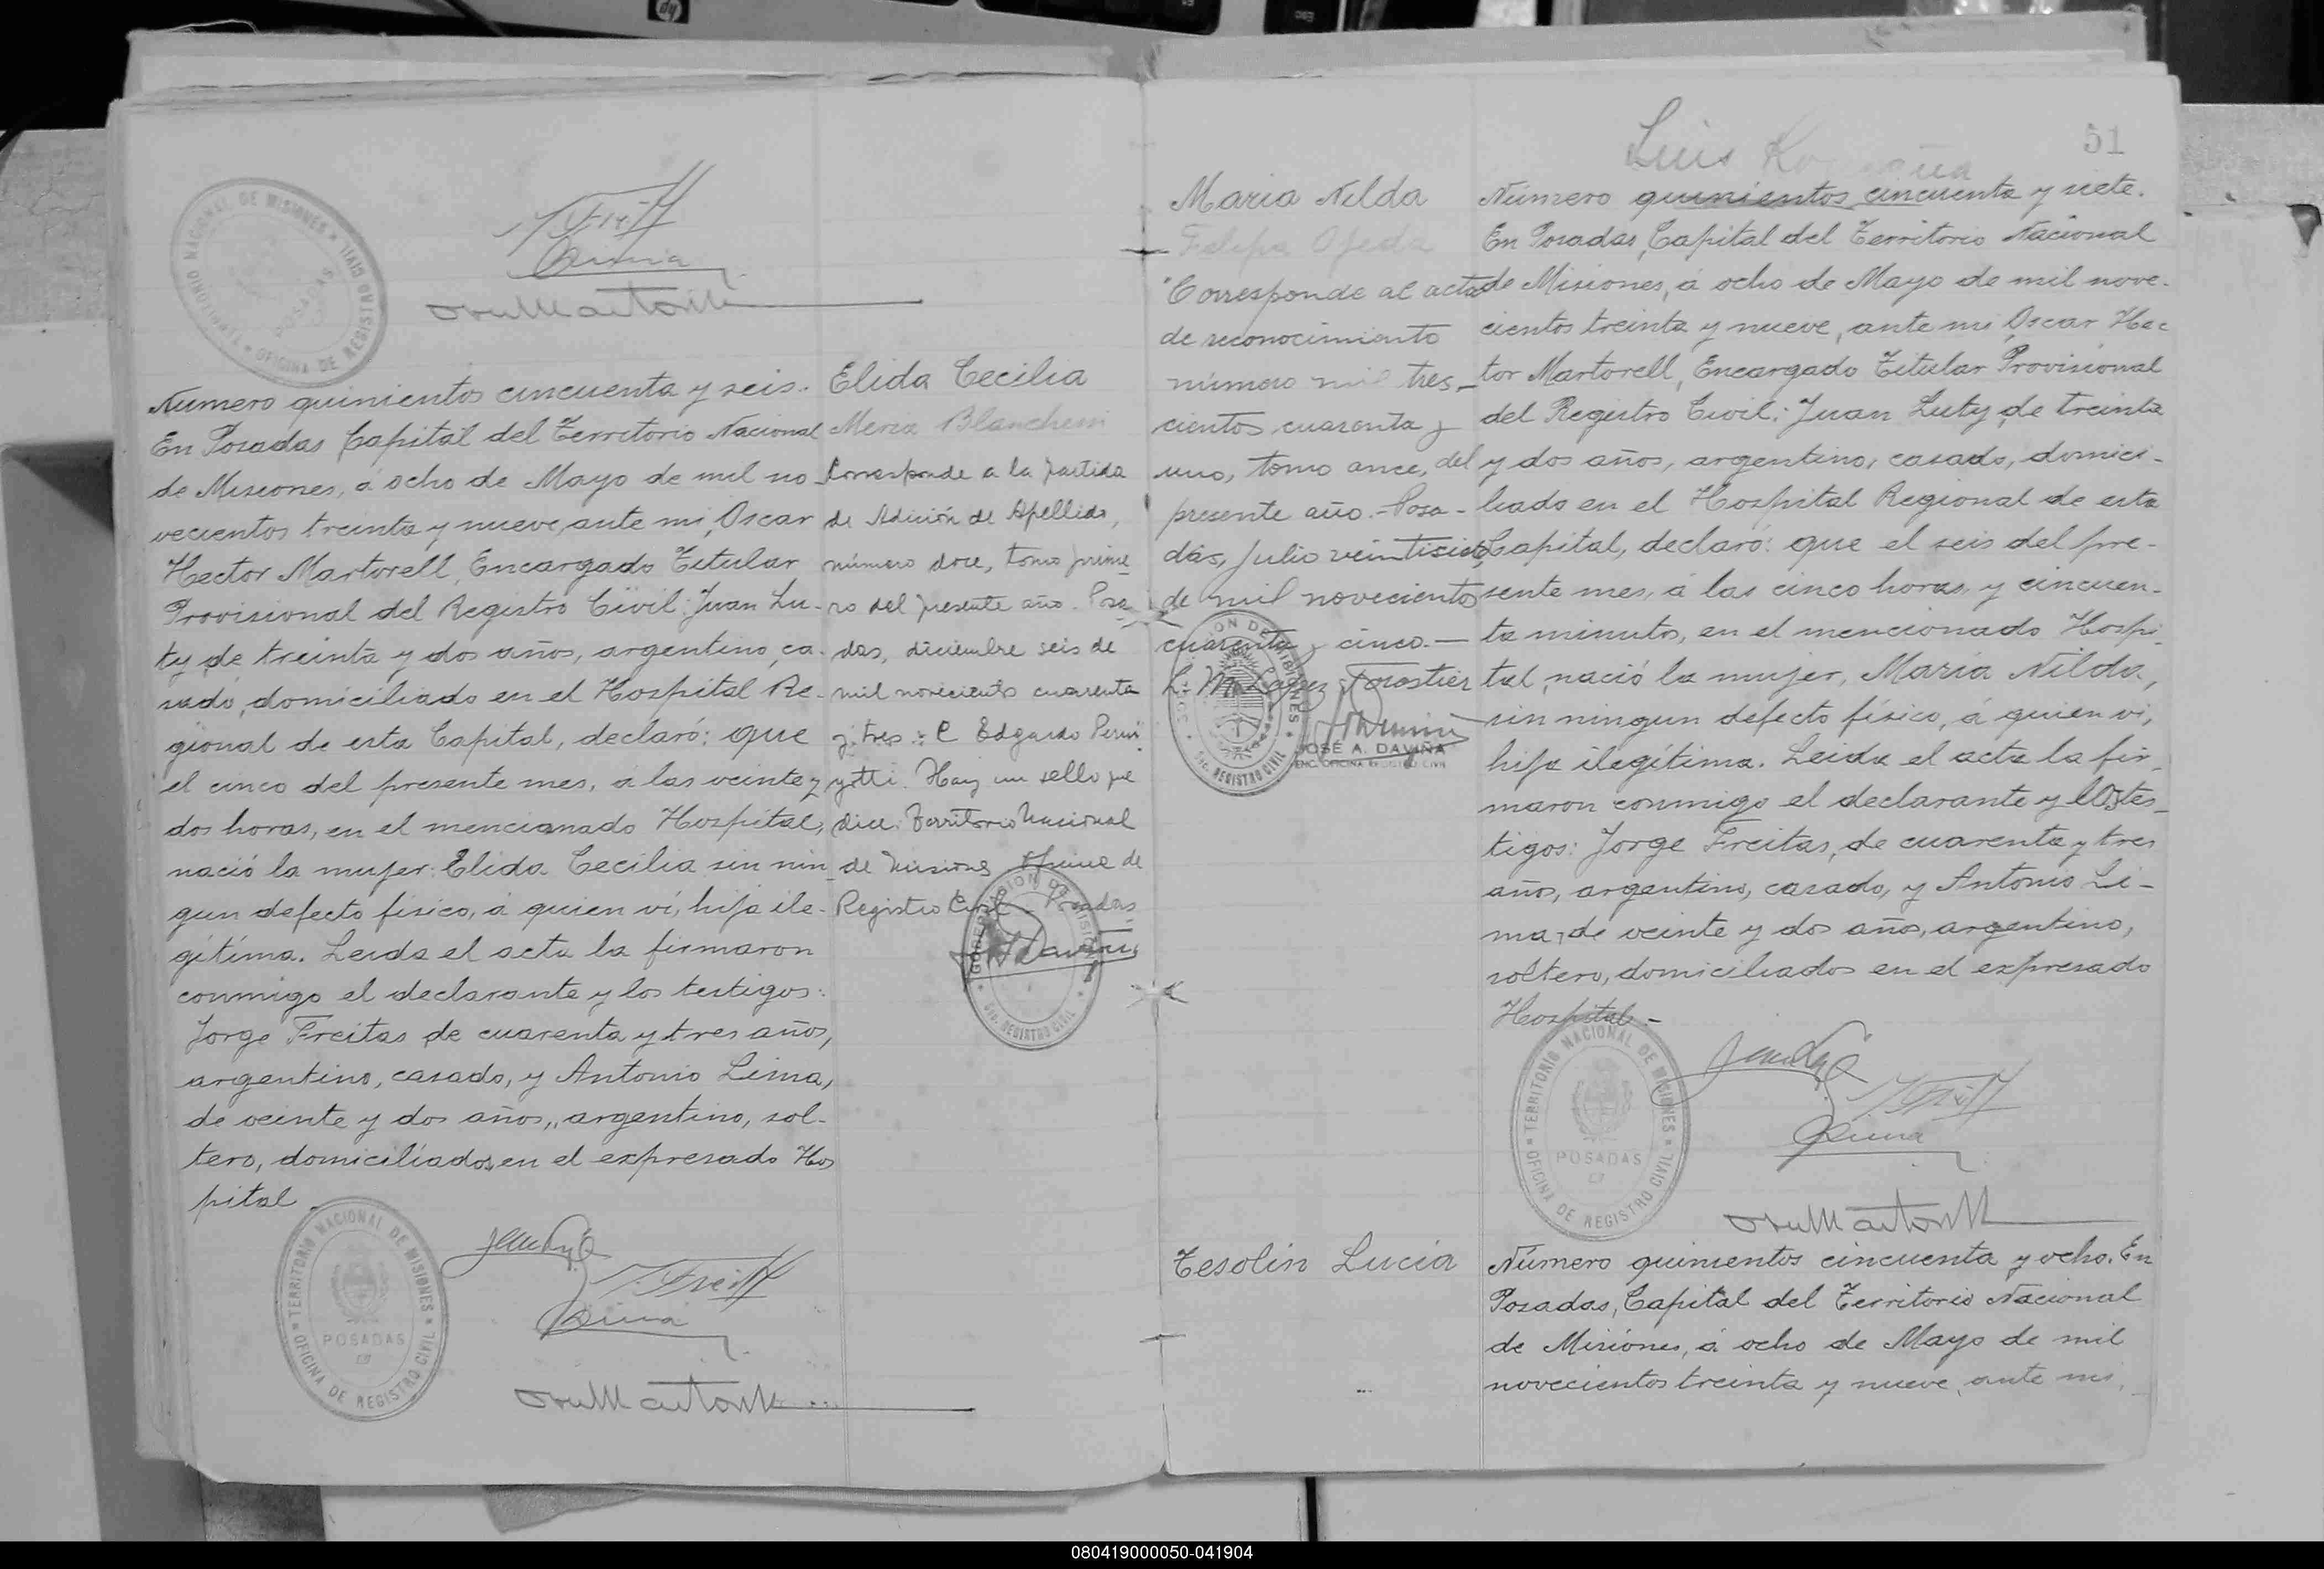 TERRITORIO NACIONAL DE MISIONES
OFICINA DE REGISTRO CIVIL
POSADAS
Numero quinientos cincuenta y seis.
En Posadas Capital del Territorio Nacional
de Misiones, á ocho de Mayo de mil no-
vecientos treinta y nueve, ante mi, Oscar
Hector Martorell, Encargado Titular
Provisional del Registro Civil: Juan Lu-
ty, de treinta y dos años, argentino, ca-
sado, domiciliado en el Hospital Re-
gional de esta Capital, declaró: que
el cinco del presente mes, á las veinte y
dos horas, en el mencionado Hospital,
nació la mujer: Elida Cecilia sin nin-
gun defecto físico, á quien ví, hija ile-
gítima. Leida el acta la firmaron
conmigo el declarante y los testigos:
Jorge Freitas de cuarenta y tres años,
argentino, casado, y Antonio Lima,
de veinte y dos años, argentino, sol-
tero, domiciliados en el expresado Hos
pital.
TERRITORIO NACIONAL DE MISIONES
OFICINA DE REGISTRO CIVIL
POSADAS
Elida Cecilia
Corresponde a la partida
de Adición de Apellido,
número doce, tomo prime-
ro del presente año. Posa-
das, diciembre seis de
mil novecientos cuarenta
y tres. C Edgardo
Hay un sello que
dice: Territorio Nacional
de Misiones Oficina de
Registro Civil - Posadas
GOBERNACION DE MISIONES
DIC. REGISTRO CIVIL
Maria Nilda
Felipa Ojeda
Corresponde al acta
de reconocimiento
número mil tres-
cientos cuarenta y
uno, tomo once, del
presente año.- Posa-
das, Julio veintiseis
de mil novecientos
cuarenta y cinco.-
JOSÉ A. DAVIÑA
ENC. OFICINA REGISTRO CIVIL
REGISTRO CIVIL
Tesolin Lucia
Luis
51
Número quinientos cincuenta y siete.
En Posadas, Capital del Territorio Nacional
de Misiones, á ocho de Mayo de mil nove-
cientos treinta y nueve, ante mi, Oscar Hec
tor Martorell, Encargado Titular Provisional
del Registro Civil: Juan Luty, de treinta
y dos años, argentino, casado, domici-
liado en el Hospital Regional de esta
Capital, declaró: que el seis del pre-
sente mes, á las cinco horas, y cincuen-
ta minutos, en el mencionado Hospi-
tal, nació la mujer, María Nilda,
sin ningun defecto físico, á quien ví,
hija ilegítima. Leida el acta la fir-
maron conmigo el declarante y los tes-
tigos: Jorge Freitas, de cuarenta y tres
años, argentino, casado, y Antonio Li-
ma, de veinte y dos años, argentino,
soltero, domiciliados en el expresado
Hospital.-
TERRITORIO NACIONAL DE MISIONES
OFICINA DE REGISTRO CIVIL
POSADAS
Número quinientos cincuenta y ocho. En
Posadas, Capital del Territorio Nacional
de Misiones, á ocho de Mayo de mil
novecientos treinta y nueve, ante mi,
080419000050-041904